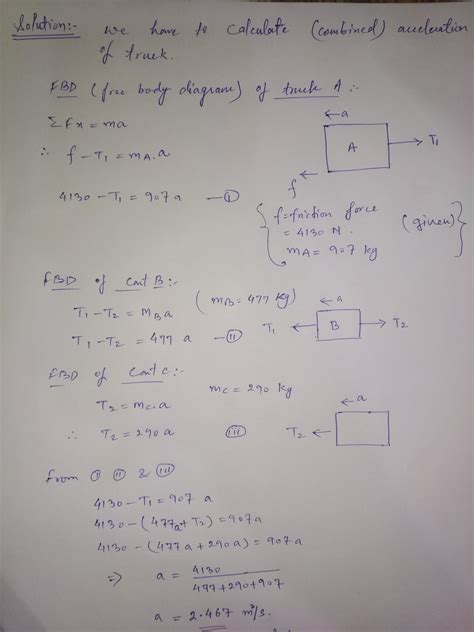 Solution:- we have to calculate (combined) acceleration
of truck.
FBD (free body diagram) of truck A :-
ΣFx = ma
∴ f - T1 = mA. a
4130 - T1 = 907 a —Ⓘ
← a
A
→ T1
f ←
{ f = friction force
= 4130 N.
mA = 907 kg } (given)
FBD of Cart B:-
T1 - T2 = MB a (mB = 477 kg)
T1 - T2 = 477 a —(II)
← a
T1 ← B → T2
FBD of Cart C:-
mC = 290 kg
T2 = mC. a
∴ T2 = 290 a (III)
← a
T2 ←
from (I) (II) & (III)
4130 - T1 = 907 a
4130 - (477a + T2) = 907a
4130 - (477a + 290a) = 907a
⇒ a = 4130
477+290+907
a = 2.467 m/s.